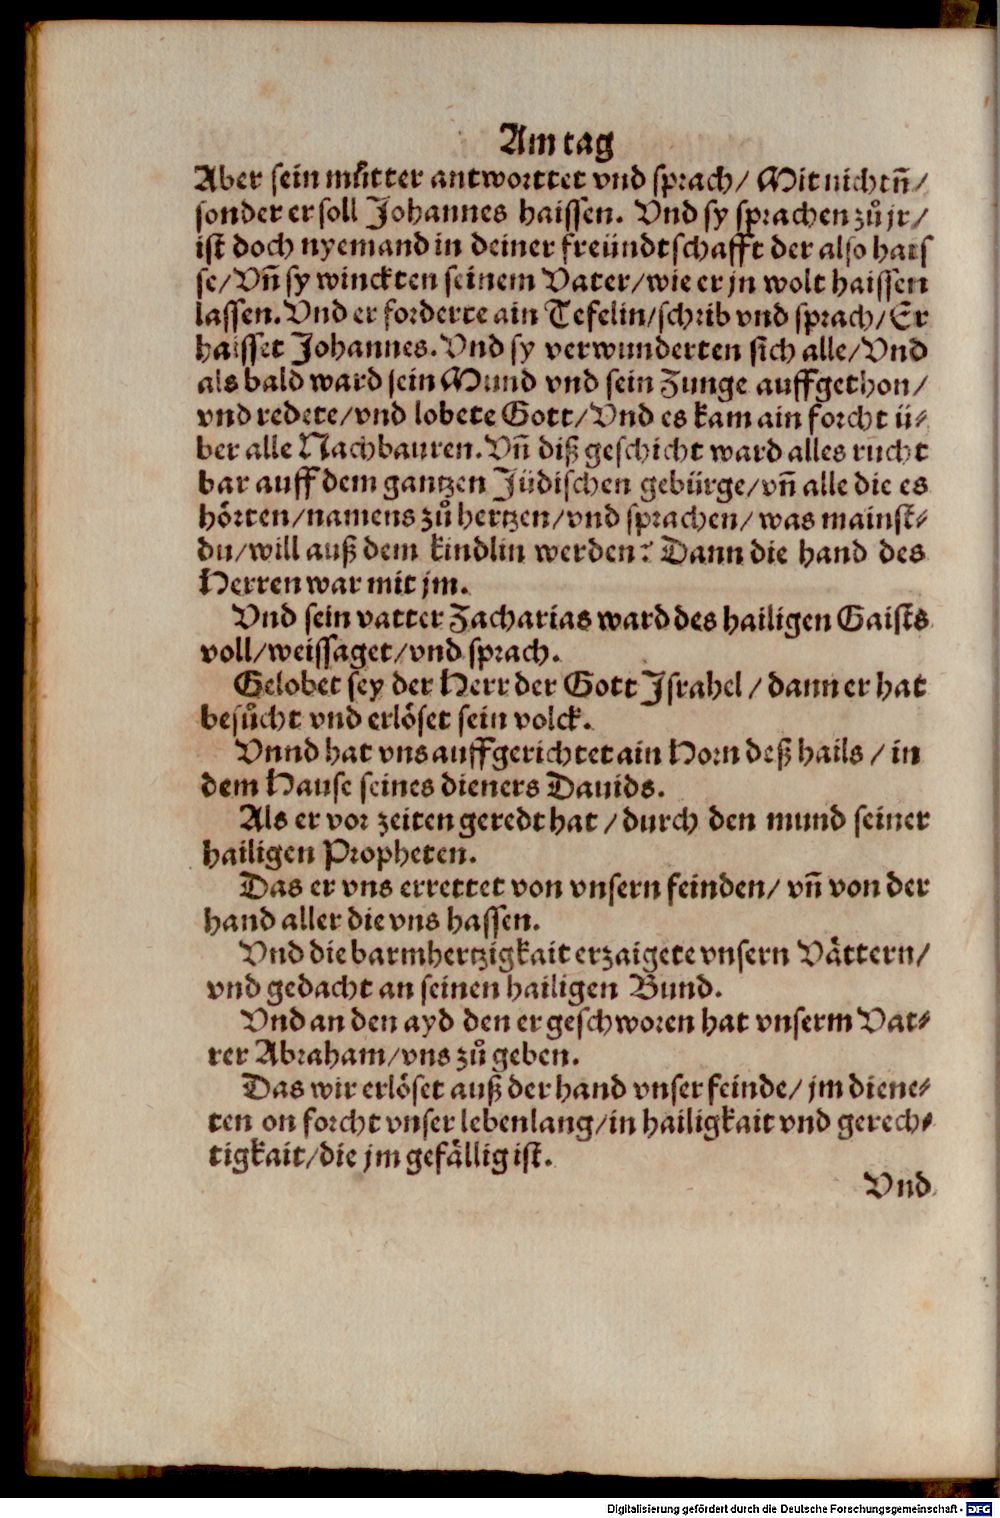 Am tag
Aber sein můtter antworttet vnd sprach/ Mit nichtn̄/
sonder er soll Johannes haissen. Vnd sy sprachen zů jr/
ist doch nyemand in deiner freündtschafft der also hais
se/ Vn̄ sy winckten seinem Vater/ wie er jn wolt haissen
lassen. Vnd er forderte ain Tefelin/ schrib vnd sprach/ Er
haisset Johannes. Vnd sy verwunderten sich alle/ Vnd
als bald ward sein Mund vnd sein Zunge auffgethon/
vnd redete/ vnd lobete Gott/ Vnd es kam ain forcht ü⸗
ber alle Nachbauren. Vn̄ diß geschicht ward alles rucht
bar auff dem gantzen Jüdischen gebürge/ vn̄ alle die es
hörten/ namens zů hertzen/ vnd sprachen/ was mainst⸗
du/ will auß dem kindlin werden? Dann die hand des
Herren war mit jm.
Vnd sein vatter Zacharias ward des hailigen Gaists
voll/ weissaget/ vnd sprach.
Gelobet sey der Herr der Gott Israhel / dann er hat
besůcht vnd erlöset sein volck.
Vnnd hat vns auffgerichtet ain Horn deß hails / in
dem Hause seines dieners Dauids.
Als er vor zeiten geredt hat / durch den mund seiner
hailigen Propheten.
Das er vns errettet von vnsern feinden/ vn̄ von der
hand aller die vns hassen.
Vnd die barmhertzigkait erzaigete vnsern Vättern/
vnd gedacht an seinen hailigen Bund.
Vnd an den ayd den er geschworen hat vnserm Vat⸗
ter Abraham/ vns zů geben.
Das wir erlöset auß der hand vnser feinde/ jm diene⸗
ten on forcht vnser lebenlang/ in hailigkait vnd gerech⸗
tigkait/ die jm gefällig ist.
Vnd
Digitalisierung gefördert durch die Deutsche Forschungsgemeinschaft - DFG